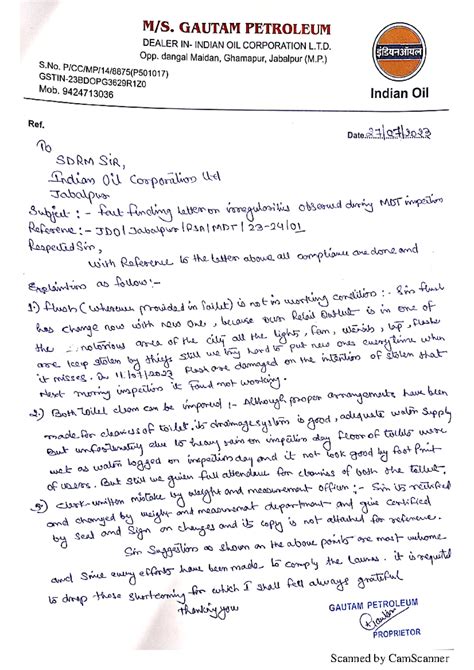 M/S. GAUTAM PETROLEUM
DEALER IN- INDIAN OIL CORPORATION L.T.D.
Opp. dangal Maidan, Ghamapur, Jabalpur (M.P.)
S.No. P/CC/MP/14/8875(P501017)
GSTIN-23BDOPG3629R1Z0
Mob. 9424713036
इंडियनऑयल
Indian Oil
Ref.
Date 27/07/2023
To
SDRM SIR,
Indian Oil Corporation Ltd
Jabalpur
Subject :- fact finding letter on irregularities observed during MDT inspection
Reference :- JDO/Jabalpur/RSA/MDT/23-24/01
Respected Sir,
With Reference to the letter above all compliance are done and
Explaintion as follow :-
1) flush (wherever provided in toilet) is not in working condition :- Sir flush
has change now with new one, because our Retail Outlet is in one of
the notorious area of the city all the lights, fan, tap, flushe
are keep stolen by thiefs still we try hard to put new ones everytime when
it misses. On 11/07/2023 flush are damaged on the intention of stolen that
Next morning inspection it found not working.
2) Both toilet clean can be improved :- Although proper arrangements have been
made for cleaness of toilet. its drainage system is good, adequate water supply
But unfortunately due to heavy rain on inspection day floor of toilets were
wet as water logged on inspection day and it not look good by foot print
of users. But still we given full attendance for cleanies of both the toilet.
3) Clerk-written mistake by weight and measurement officer :- Sir its rectified
and changed by weight and measurement department and give certified
by seal and sign on changes and its copy is not attached for reference.
Sir Suggestion as shown on the above points are most welcome
and Since every efforts have been made to comply the It is requested
to drop these shortcoming for which I shall fell always grateful
thanking you
GAUTAM PETROLEUM
PROPRIETOR
Scanned by CamScanner